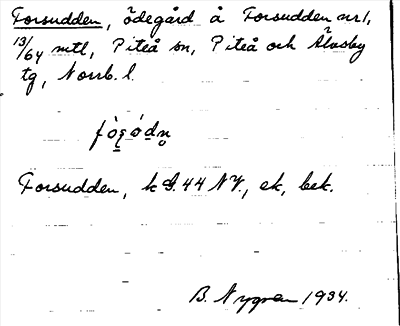 Forsudden, ödegård å Forsudden nr 1,
13/64 mtl, Piteå sn, Piteå och Älvsby
tg, Norrb. l.
Forsudden, k bl. 44 NV., ek, bek.
B. Nygren 1934.